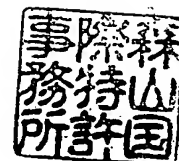 山国
際特許
事務所